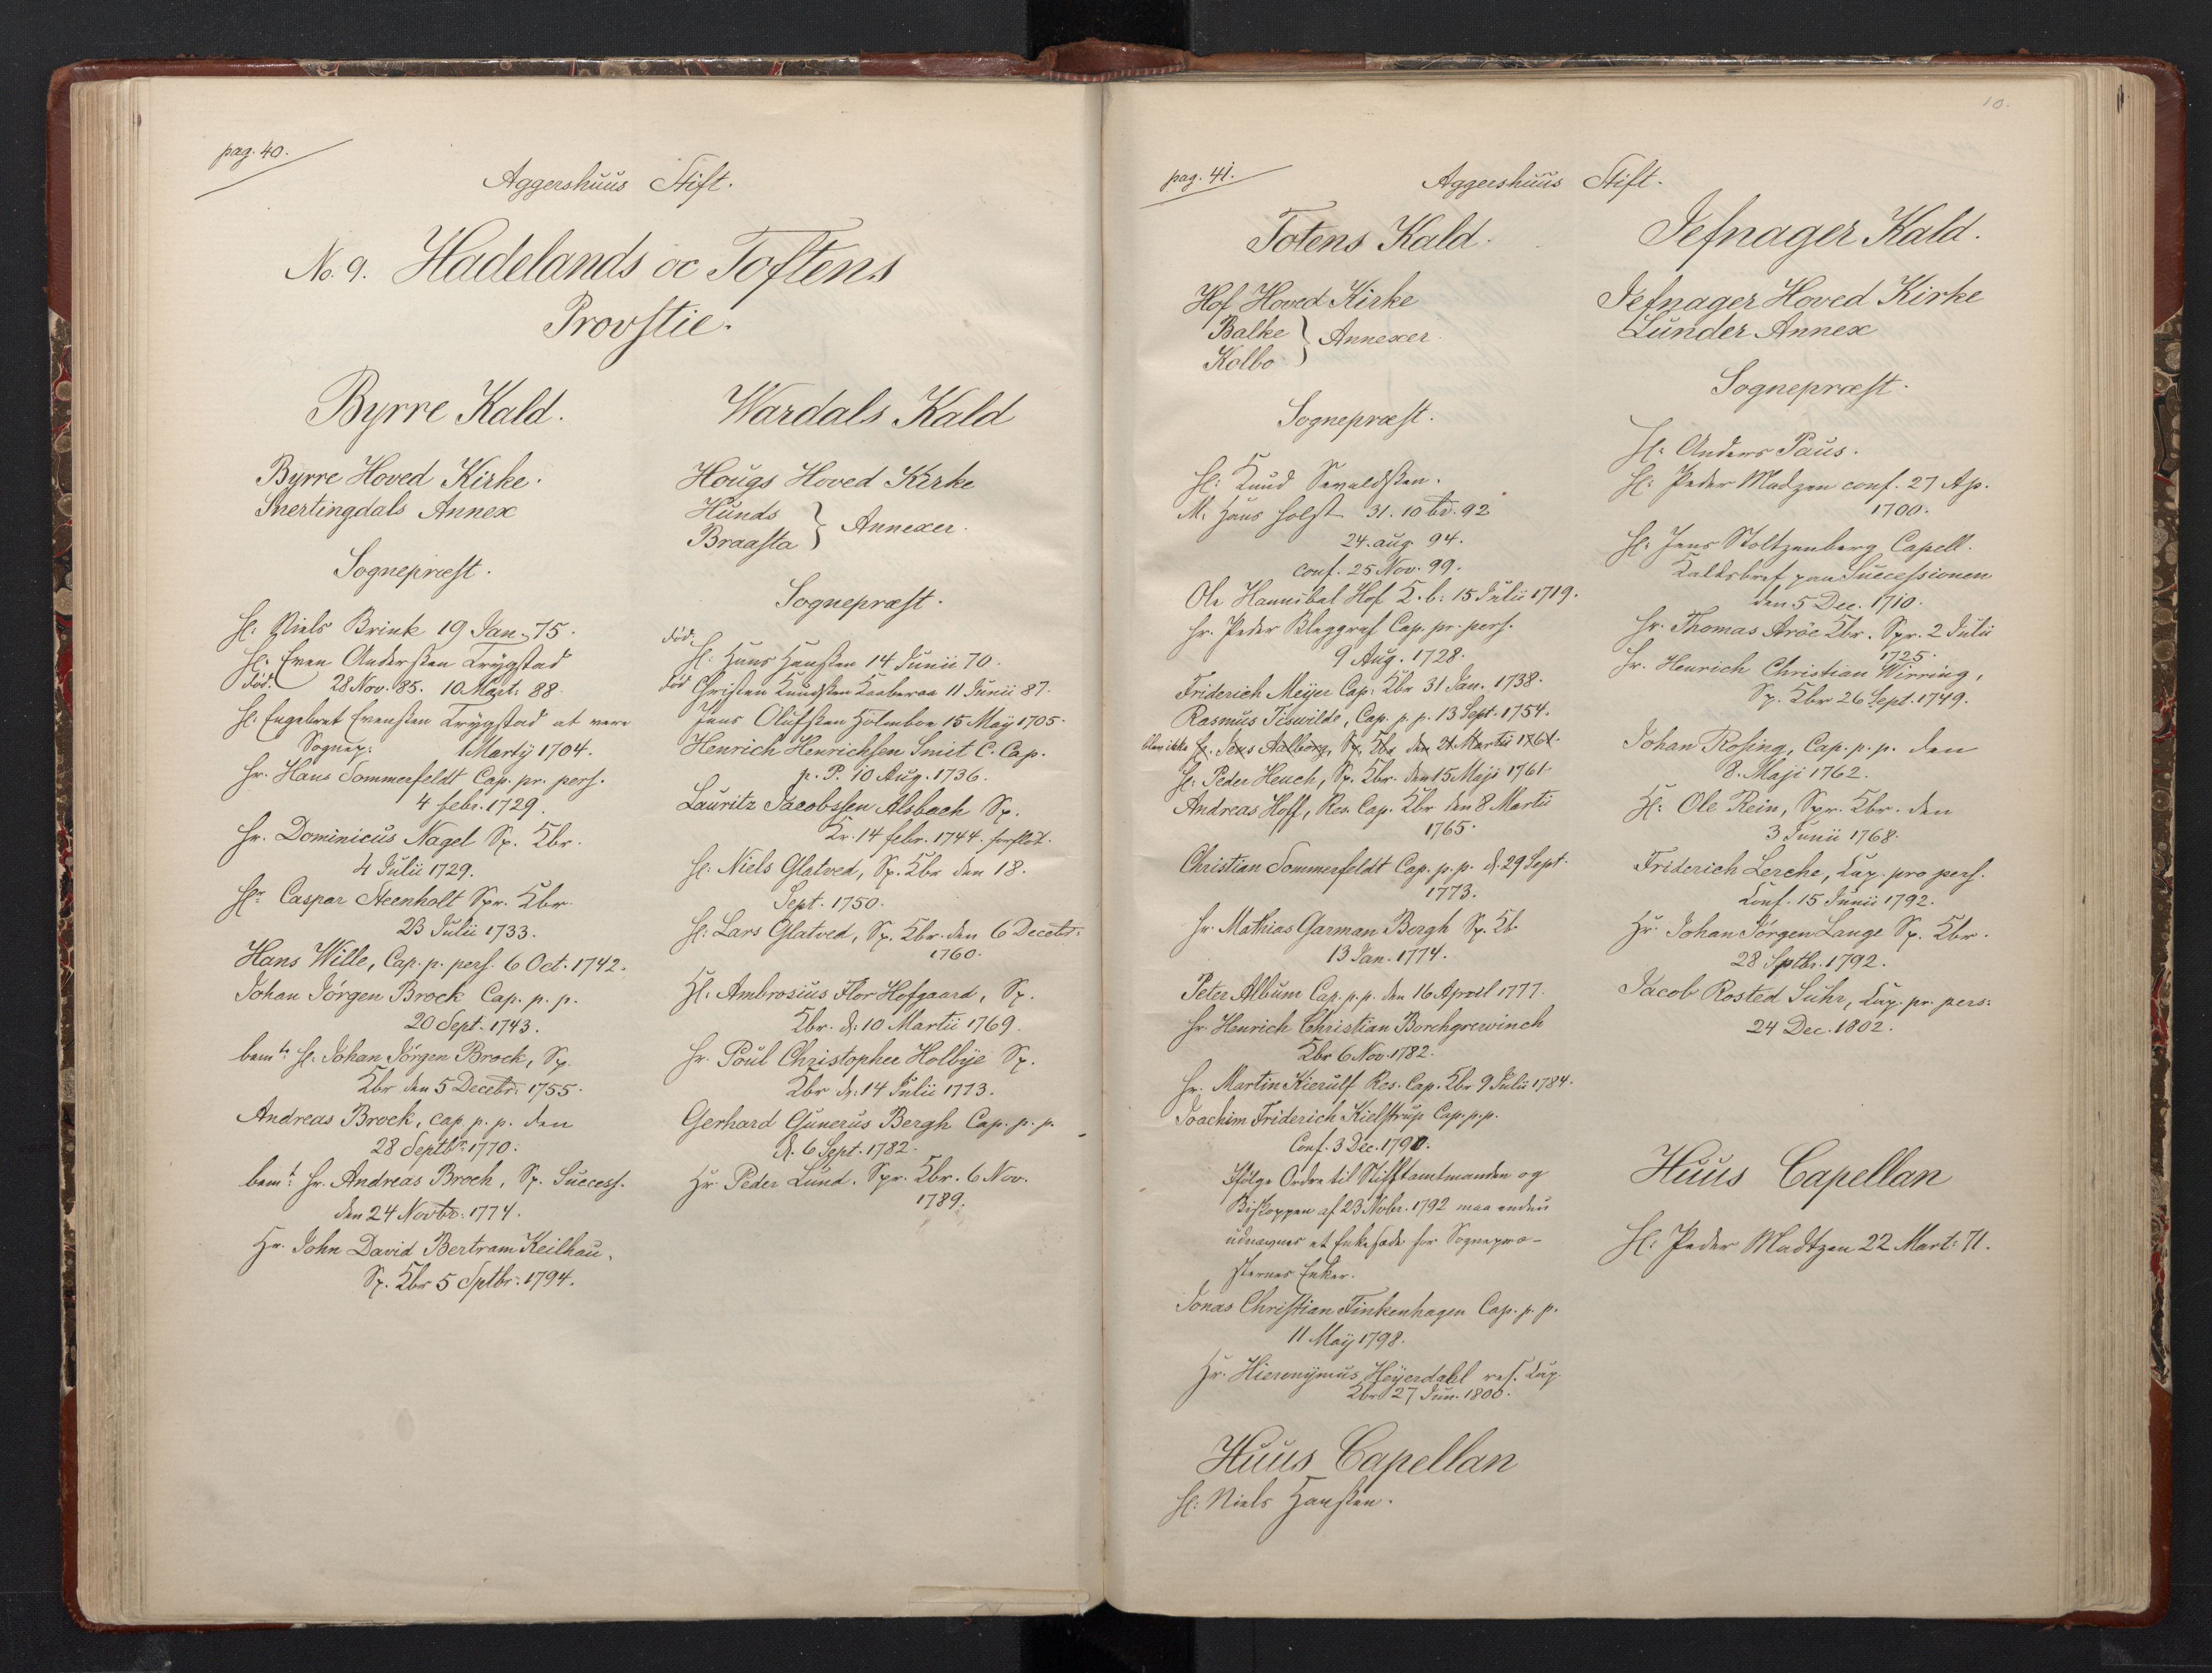 pag. 40.
Aggershuus Stift.
No. 9. Hadelands oc Toftens
Provstie.
Byrre Kald.
Byrre Hoved Kirke.
Snertingdals Annex
Sognepræst.
Hl: Niels Brink 19 Jan. 75.
Hl: Even Andersen Trygstad
död. 28 Nov. 85. 10 Mart. 88.
Hl: Engebret Evensen Trygstad at være
Sognep: 1 Martij 1704.
Hr. Hans Sommerfeldt Cap. pr. pers.
4 febr. 1729.
Hr. Dominicus Nagel Sp. Kbr.
4 Julii 1729.
Hr. Caspar Steenholt Spr. Kbr.
23 Julii 1733.
Hans Wille, Cap. p. pers. 6 Oct. 1742.
Johan Jörgen Brock Cap. p. p.
20 Sept. 1743.
bemte Hl. Johan Jörgen Brock, Sp.
Kbr den 5 Decebr: 1755.
Andreas Brock, cap. p. p. den
28 Septbr. 1770.
bemt Hr. Andreas Broch, Sp. Success.
den 24 Novbr: 1774.
Hr. John David Bertram Keilhau,
Sp. Kbr 5 Sptbr. 1794.
Wardals Kald
Hougs Hoved Kirke
Hunds
Braasta } Annexer.
Sognepræst.
död. Hl: Hans Hansen 14 Junii 70.
död Christen Knudsen 11 Junii 87.
Jens Olufsen Holmboe 15 Maij 1705.
Henrich Henrichsen Smit C. Cap.
p. P. 10 Aug. 1736.
Lauritz Jacobssen Alsbach Sp.
Kr. 14 febr. 1744. forflöt.
Hl: Niels Glatved, Sp. Kbr den 18.
Sept. 1750.
Hl: Lars Glatved, Sp. Kbr. den 6 Decebr:
1760.
Hl: Ambrosius Flor Hofgaard, Sp.
Kbr. d: 10 Martii 1769.
Hr. Poul Christopher Holbye Sp.
Kbr d: 14 Julii 1773.
Gerhard Gunerus Bergh Cap. p. p.
d. 6 Sept. 1782.
Hr. Peder Lund. Spr. Kbr. 6 Nov.
1789.
10.
pag. 41.
Aggershuus Stift.
Totens Kald.
Hof Hoved Kirke
Balke
Kolbo } Annexer.
Sognepræst.
Hl: Knud Sevaldsen.
M. Hans Holst 31. 10br. 92
24. aug. 94.
conf. 25 Nov. 99.
Ole Hannibal Hof K. b: 15 Julii 1719.
Hr. Peder Bleggraf Cap. pr. pers.
9 Aug. 1728.
Friderich Meijer Cap. Kbr 31 Jan. 1738.
Rasmus Tiswilde, Cap. p. p. 13 Sept. 1754.
blev ikke Hr. Jens Aalborg, Sp. Kbr den 21 Martii 1761.
Hl: Peder Heuch, Sp. Kbr. den 15 Maji 1761.
Andreas Hoff, Res. Cap. Kbr den 8 Martii
1765.
Christian Sommerfeldt Cap. p. p. d. 29 Sept.
1773.
Hr. Mathias Garman Bergh Sp. Kb.
13 Jan. 1774.
Peter Album Cap. p. p. den 16 April 1777.
Hr. Henrich Christian Borchgrewinch
Kbr 6 Nov. 1782.
Hr. Martin Kierulf Res. Cap. Kbr 9 Julii 1784.
Joachim Friderich Kielstrup Cap. p. p.
Conf. 3 Dec. 1790.
Ifölge Ordre til Stiftamtmanden og
Biskoppen af 23 Novbr. 1792 maa endnu
udnævnes et Enkesæde for Sognepræ-
sternes Enker.
Jonas Christian Finkenhagen Cap. p. p.
11 Maij 1798.
Hr. Hieronijmus Heijerdahl res. Cap.
Kbr 27 Jun. 1800.
Huus Capellan
Hl: Niels Hansen.
Jefnager Kald.
Jefnager Hoved Kirke
Lunder Annex
Sognepræst.
Hl: Anders Paus.
Hl: Peder Madzen conf. 27 Ap.
1700.
Hl: Jens Stoltzenberg Capell.
Kaldsbref paa Successionen
den 5 Dec. 1710.
Hr. Thomas Aröe Kbr. Spr. 2 Julii
1725.
Hr. Henrich Christian Wirring,
Sp. Kbr 26 Sept. 1749.
Johan Rosing, Cap. p. p. den
8. Maji 1762.
Hl: Ole Rein, Spr. Kbr. den
3 Junii 1768.
Friderich Lerche, Cap. pro pers.
Conf. 15 Junii 1792.
Hr. Johan Jörgen Lange Sp. Kbr.
28 Sptbr. 1792.
Jacob Rosted Suhr, Cap. pr. pers:
24 Dec. 1802.
Huus Capellan
Hl: Peder Madtzen 22 Mart: 71.